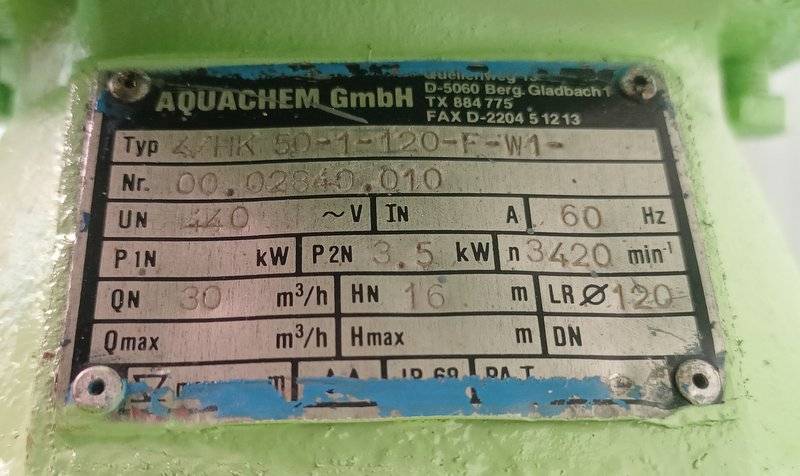 AQUACHEM GmbH
Quellenweg 13
D-5060 Berg. Gladbach 1
TX 884 775
FAX D-2204 5 12 13
Typ 4/HK 50-1-120-F-W1-
Nr. 00.02840.010
UN 440 ~V IN A 60 Hz
P1N kW P2N 3.5 kW n 3420 min⁻¹
QN 30 m³/h HN 16 m LR Ø 120
Qmax m³/h Hmax m DN
m IP 68